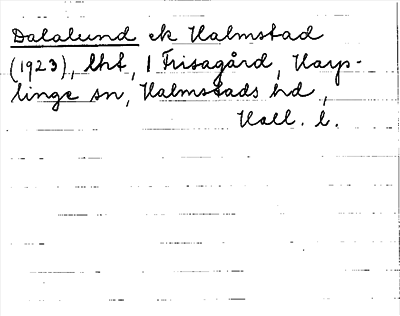 Dalalund ek Halmstad
(1923), lht, 1 Frisagård, Harp-
linge sn, Halmstads hd,
Hall. l.